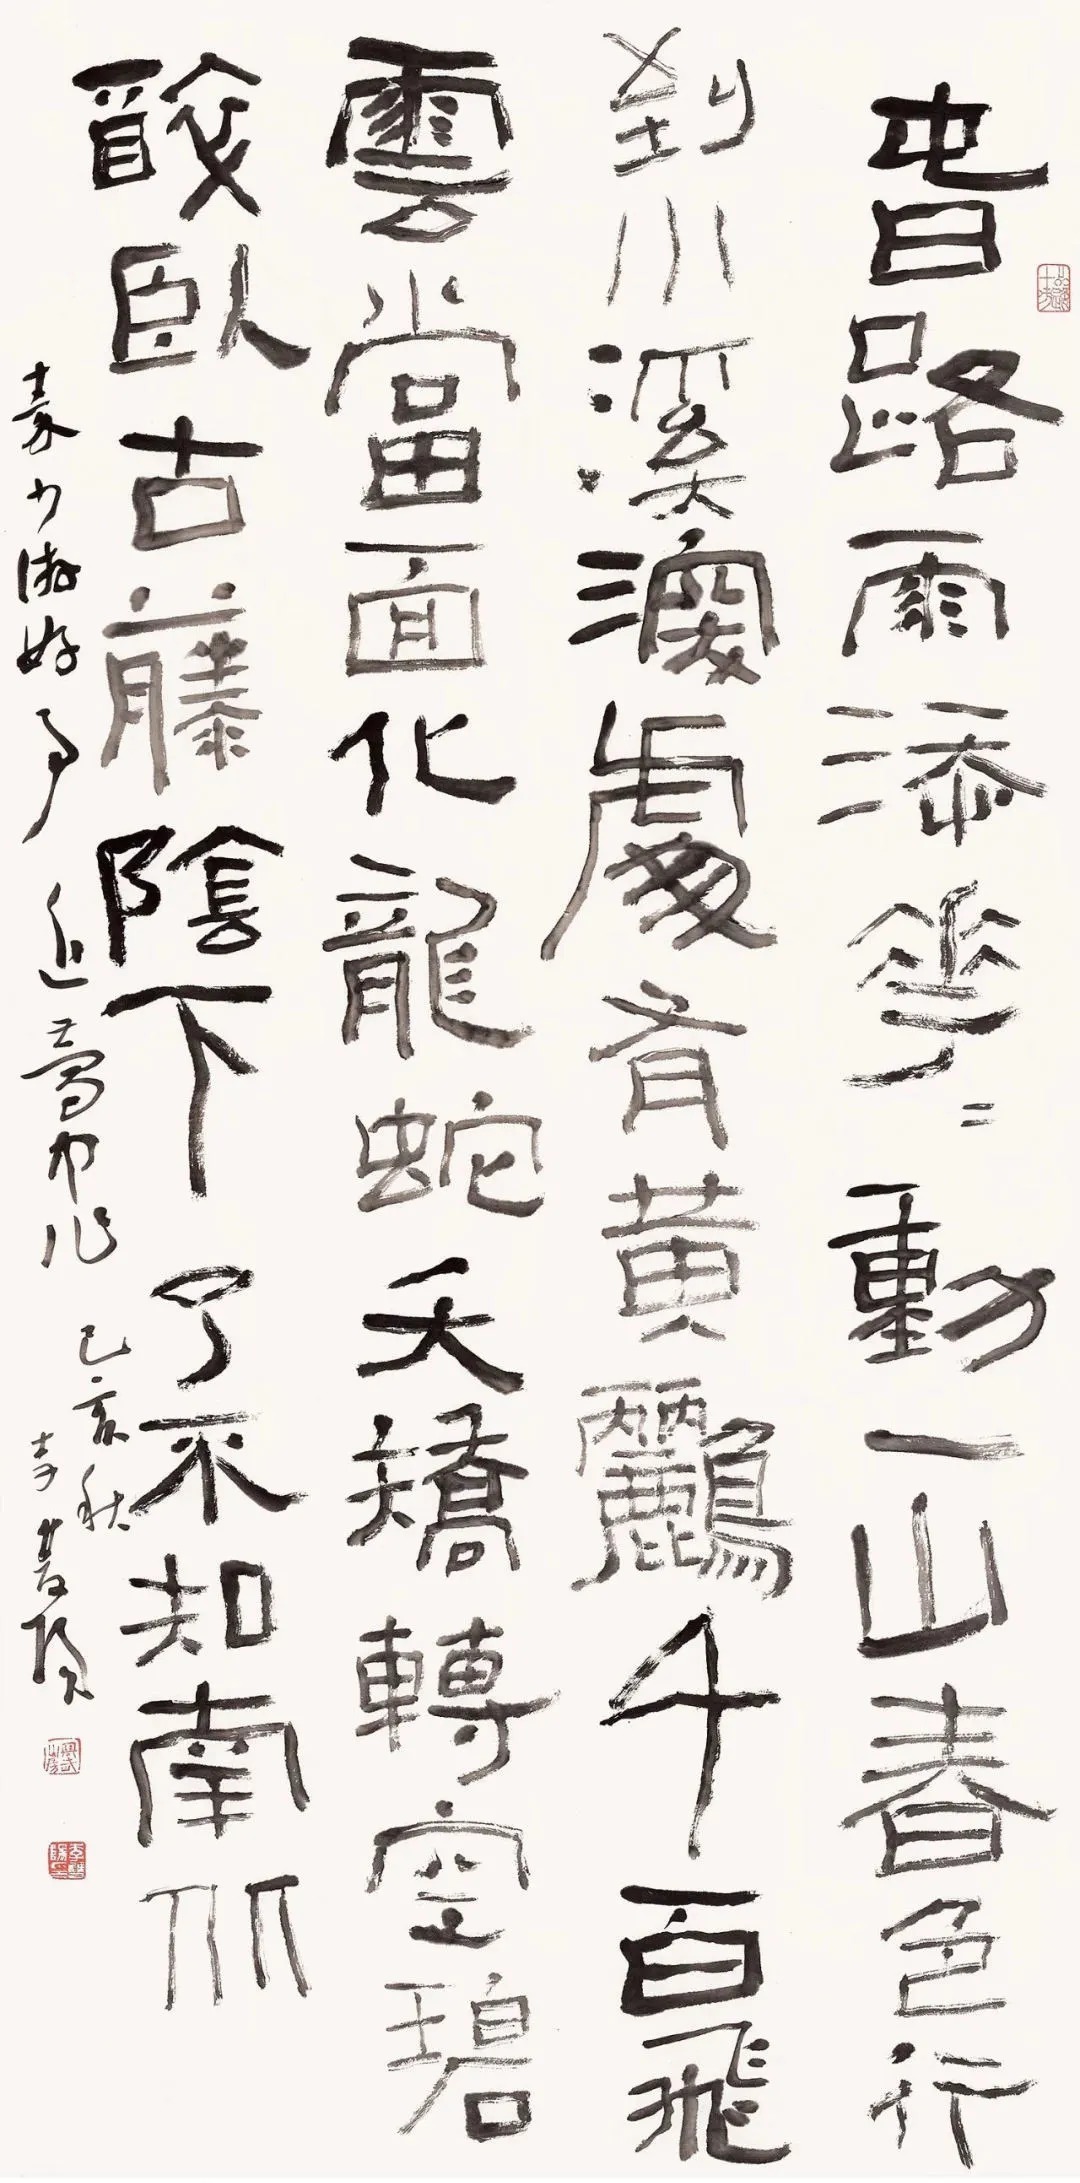 春路雨添花〻動一山春色行
到小溪深處有黃鸝千百飛
雲當面化龍蛇夭矯轉空碧
醉臥古藤陰下了不知南北
秦少游好事近夢中作
己亥秋
李雙陽